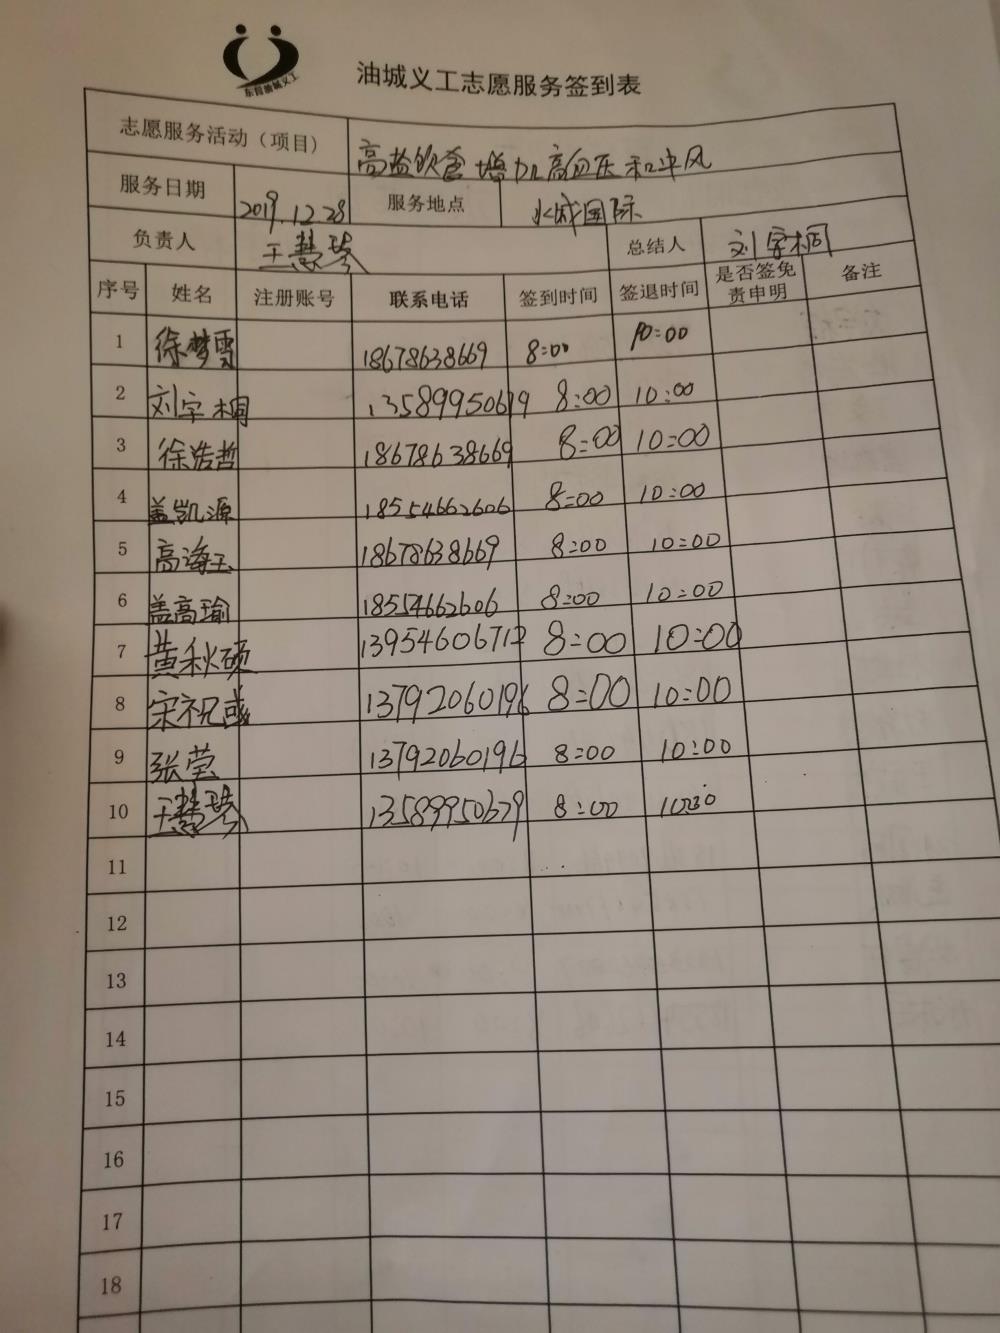 东营油城义工
油城义工志愿服务签到表
志愿服务活动（项目） 高盐饮食增加高血压和中风
服务日期 2019.12.28 服务地点 水城国际
负责人 王慧琴 总结人 刘宇桐
序号 姓名 注册账号 联系电话 签到时间 签退时间 是否签免责申明 备注
1 徐梦雪 18678638669 8:00 10:00
2 刘宇桐 13589950679 8:00 10:00
3 徐浩哲 18678638669 8:00 10:00
4 盖凯源 18554662606 8:00 10:00
5 高海玉 18678638669 8:00 10:00
6 盖高瑜 18554662606 8:00 10:00
7 黄秋硕 13954606712 8:00 10:00
8 宋祝彧 13792060196 8:00 10:00
9 张莹 13792060196 8:00 10:00
10 王慧琴 13589950679 8:00
11
12
13
14
15
16
17
18